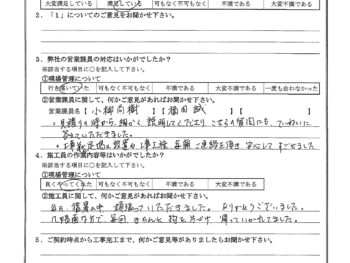 大変満足している 満足している 可もなく不可もなく 不満である 大変不満である
2．「1」についてのご意見をお聞かせ下さい。
3．弊社の営業課員の対応はいかがでしたか？
※該当する項目に○を記入して下さい。
①現場管理について
行き届いていた 可もなく不可もなく 不満である 大変不満である 一度も会わなかった
②営業課員に関して、何かご意見があればお聞かせ下さい。
営業課員名【小柳尚樹】【福田誠】【 】
・見積りの時から、細かく説明してくださり こちらの質問にも、ていねいに
答えていただきました。
4．施工員の作業内容等はいかがでしたか？
※該当する項目に○を記入して下さい。
①現場管理について
良くやってくれた 可もなく不可もなく 不満である 大変不満である
②施工員に関して、何かご意見があればお聞かせ下さい。
猛暑の中 頑張っていただきました。ありがとうございました。
毎回 きちんと 物を片づけ 帰っていかれてました。
5．ご契約時点から工事完工まで、何かご意見等がありましたらお聞かせ下さい。